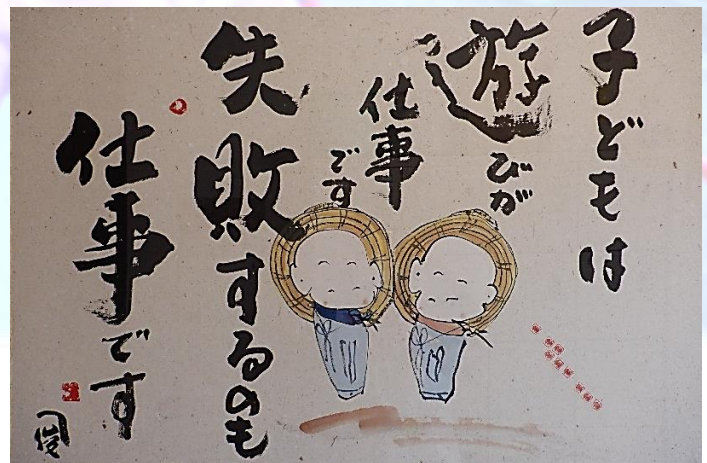 子どもは
遊びが
仕事
です
失敗するのも
仕事です
俊